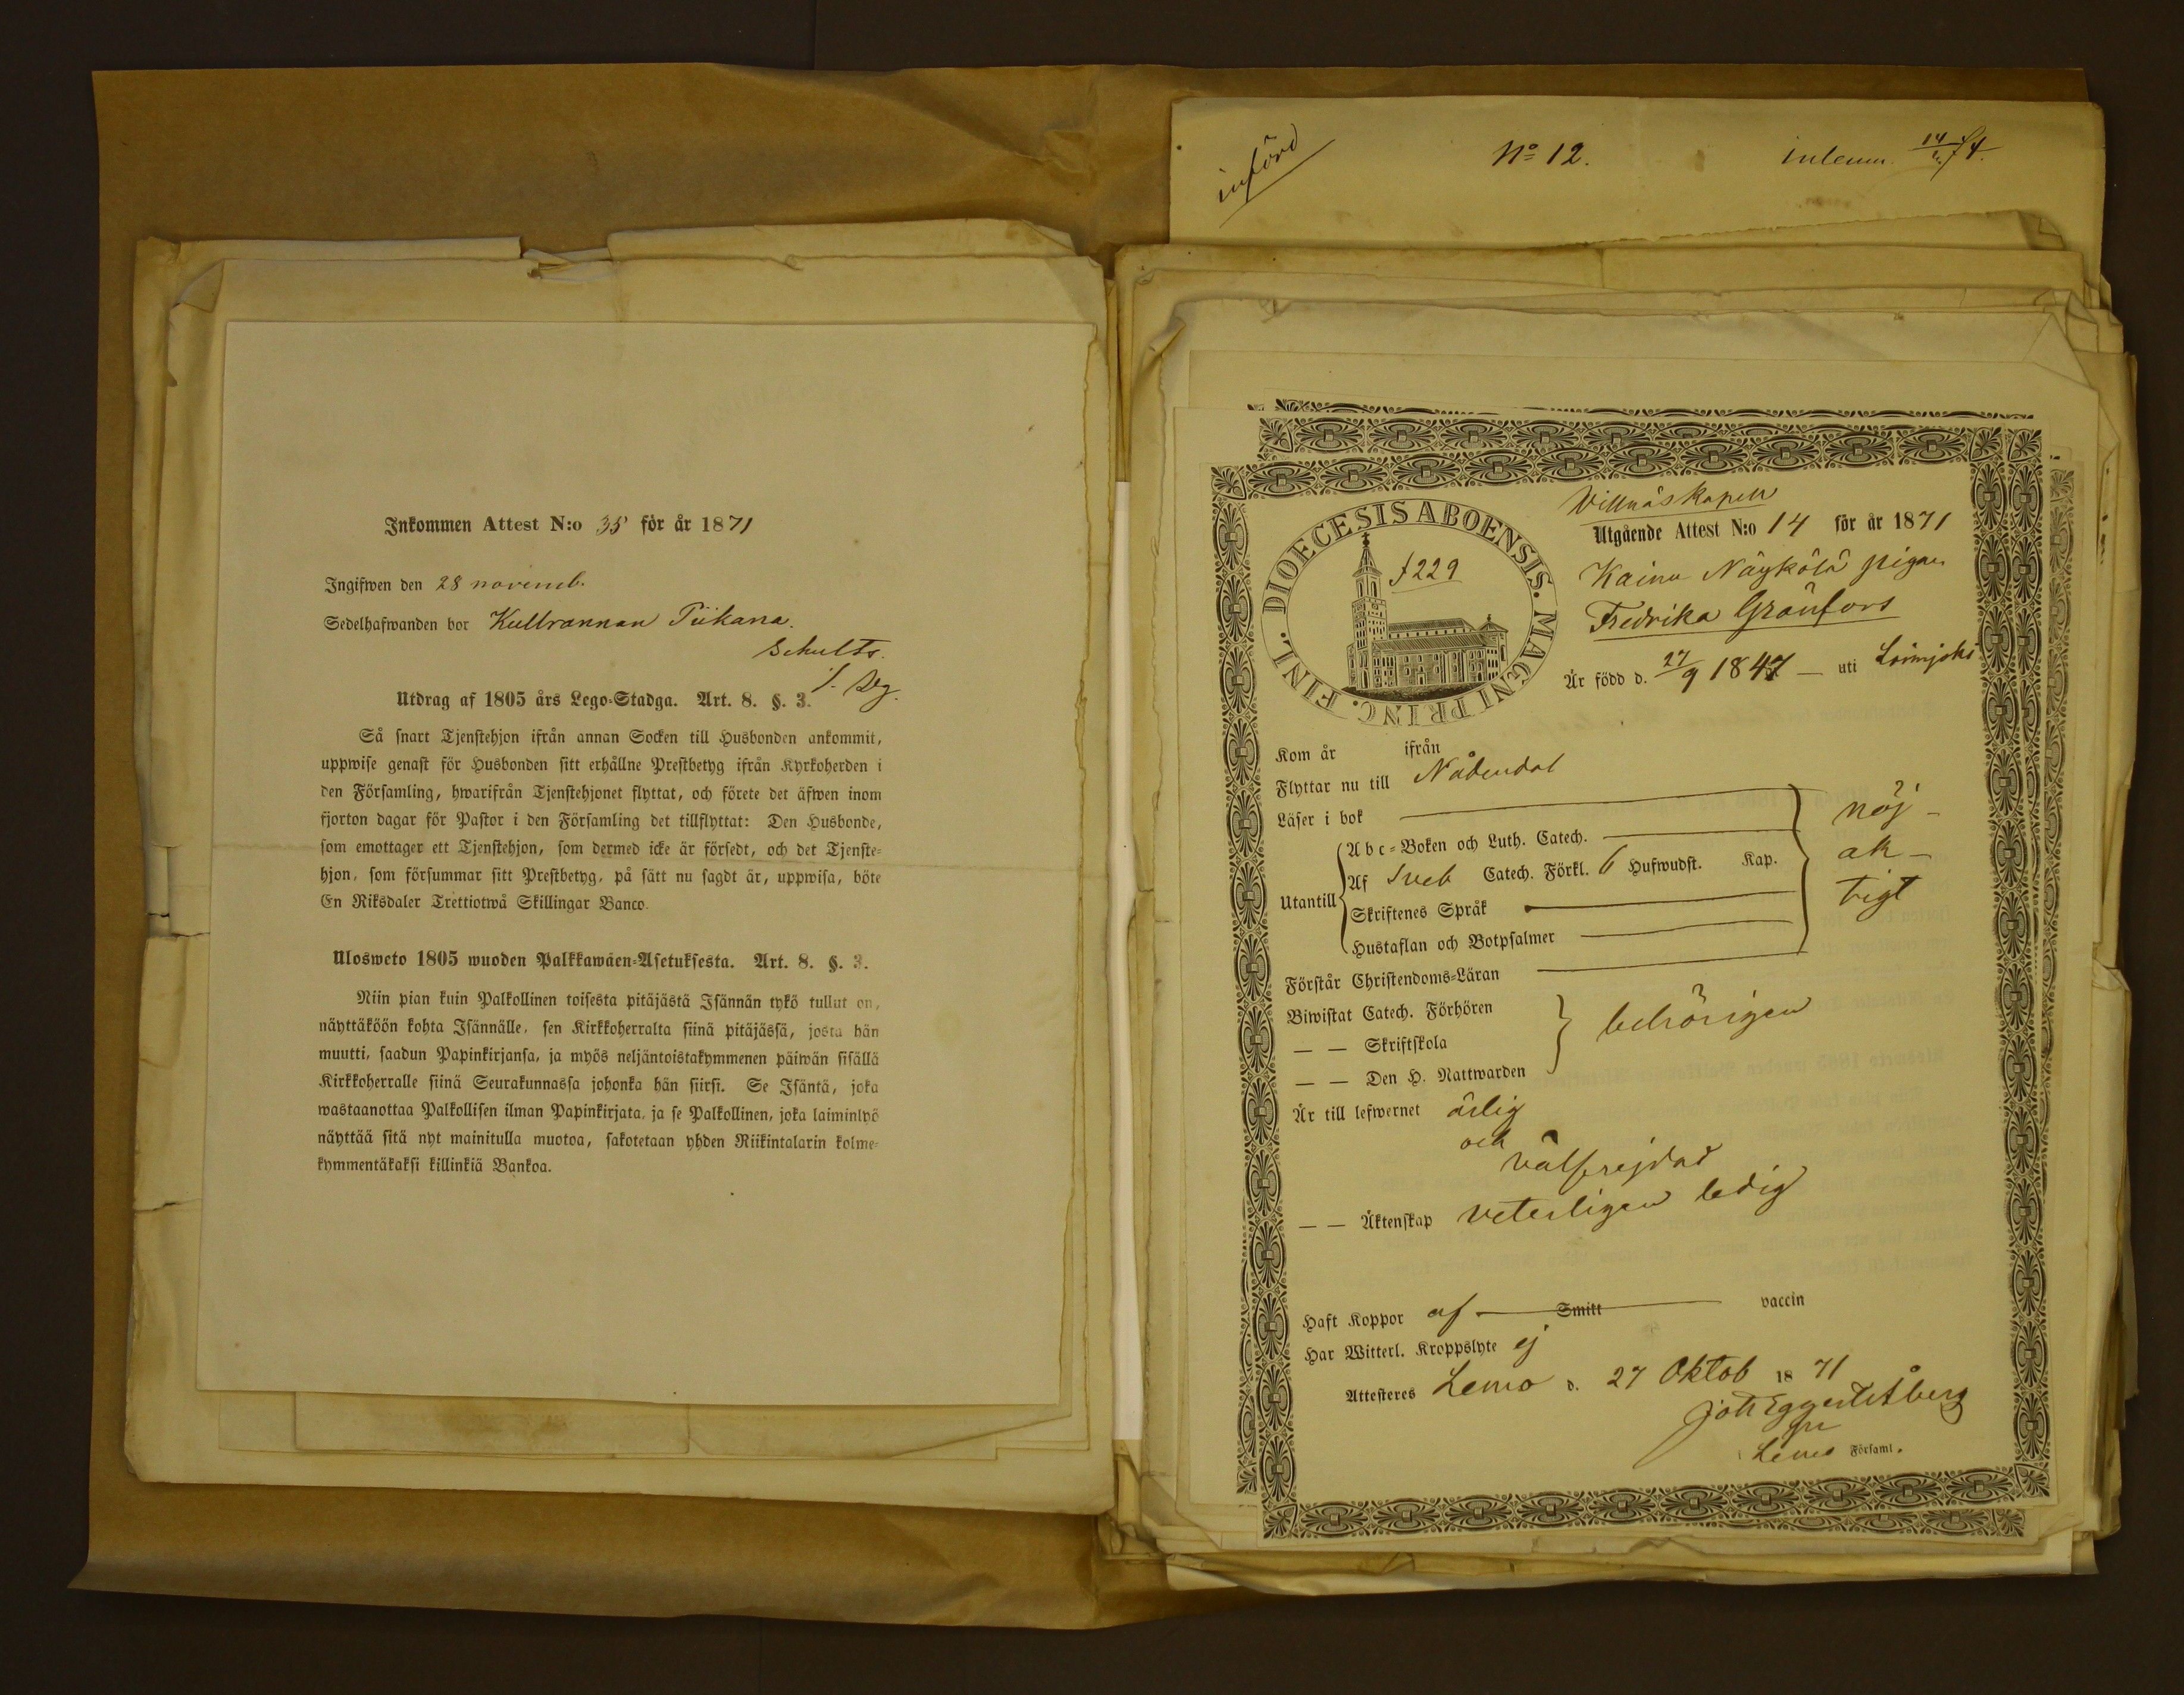 Inkommen Attest N:o 35 för år 1871
Ingifwen den 28 novemb.
Sedelhafwanden bor Kullrannan Piikana.
Schultz.
Utdrag af 1805 års Lego-Stadga. Art. 8. §. 3.
Så snart Tjenstehjon ifrån annan Socken till Husbonden ankommit,
uppwise genast för Husbonden sitt erhållne Prestbetyg ifrån Kyrkoherden i
den Församling, hwarifrån Tjenstehjonet flyttat, och förete det äfwen inom
fjorton dagar för Pastor i den Församling det tillflyttat: Den Husbonde,
som emottager ett Tjenstehjon, som dermed icke är försedt, och det Tjenste-
hjon, som försummar sitt Prestbetyg, på sätt nu sagdt är, uppwisa, böte
En Riksdaler Trettiotwå Skillingar Banco.
Ulosweto 1805 wuoden Palkkawäen-Asetuksesta. Art. 8. §. 3.
Niin pian kuin Palkollinen toisesta pitäjästä Isännän tykö tullut on,
näyttäköön kohta Isännälle, sen Kirkkoherralta siinä pitäjässä, josta hän
muutti, saadun Papinkirjansa, ja myös neljäntoistakymmenen päiwän sisällä
Kirkkoherralle siinä Seurakunnassa johonka hän siirsi. Se Isäntä, joka
wastaanottaa Palkollisen ilman Papinkirjata, ja se Palkollinen, joka laiminlyö
näyttää sitä nyt mainitulla muotoa, sakotetaan yhden Riikintalarin kolme-
kymmentäkaksi killinkiä Bankoa.
införd
No 12.
inlemn. 14/74.
Villnäs Kapell
Utgående Attest N:o 14 för år 1871
FINL. DIOECESIS ABOENSIS. MAGNI PRINC.
f 229
Kainu Näykölä pigan
Fredrika Grönfors
Är född d. 27/9 1847 — uti Loimjoki
Kom år ifrån
Flyttar nu till Nådendal
Läser i bok
Utantill
Abc-Boken och Luth. Catech.
Af Sveb Catech. Förkl. 6 Hufwudst. Kap.
Skriftenes Språk
Hustaflan och Botpsalmer
nöj-
ak-
tigt
Förstår Christendoms-Läran
Biwistat Catech. Förhören
— — Skriftskola
— — Den H. Nattwarden
behörigen
Är till lefwernet ärlig
och
välfrejdad
— — Äktenskap veterligen ledig
Haft Koppor af Smitt vaccin
Har Witterl. Kroppslyte ej
Attesteres Lemo d. 27 Oktob 1871
Joh Eggert Åberg
Lemo Församl.